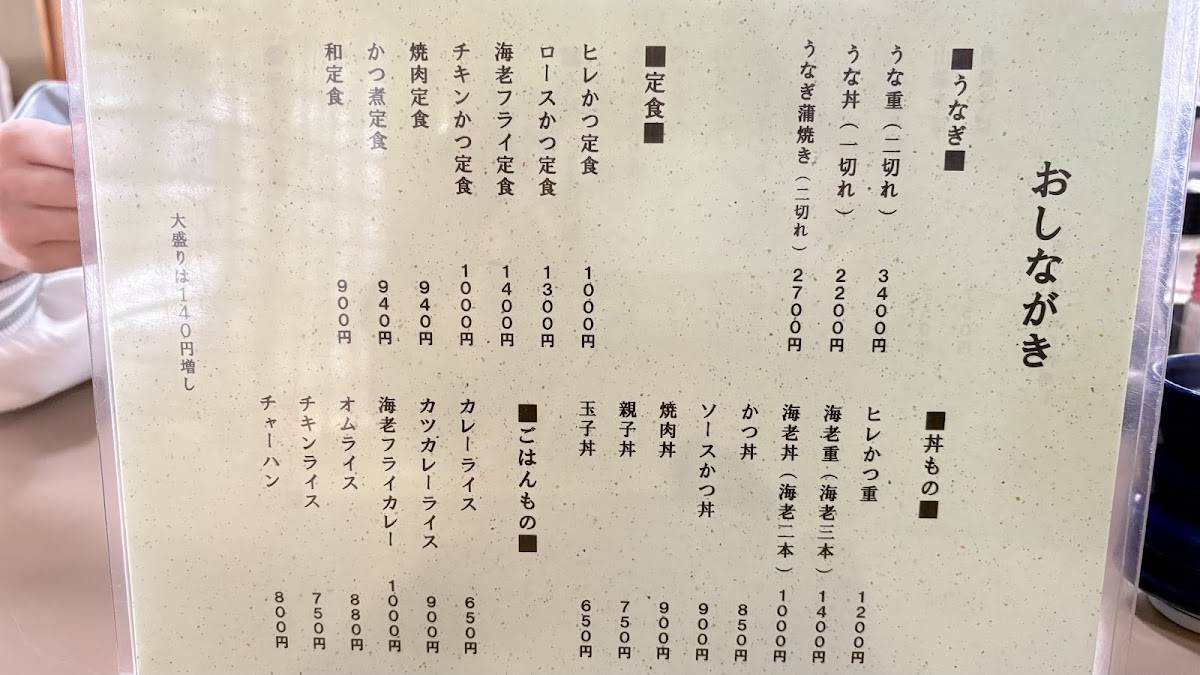 おしながき
■うなぎ■
うな重（二切れ） 3400円
うな丼（一切れ） 2200円
うなぎ蒲焼き（二切れ） 2700円
■定食■
ヒレかつ定食 1000円
ロースかつ定食 1300円
海老フライ定食 1400円
チキンかつ定食 1000円
焼肉定食 940円
かつ煮定食 940円
和定食 900円
■丼もの■
ヒレかつ重 1200円
海老重（海老三本） 1400円
海老丼（海老二本） 1000円
かつ丼 850円
ソースかつ丼 900円
焼肉丼 900円
親子丼 750円
玉子丼 650円
■ごはんもの■
カレーライス 650円
カツカレーライス 900円
海老フライカレー 1000円
オムライス 880円
チキンライス 750円
チャーハン 800円
大盛りは140円増し